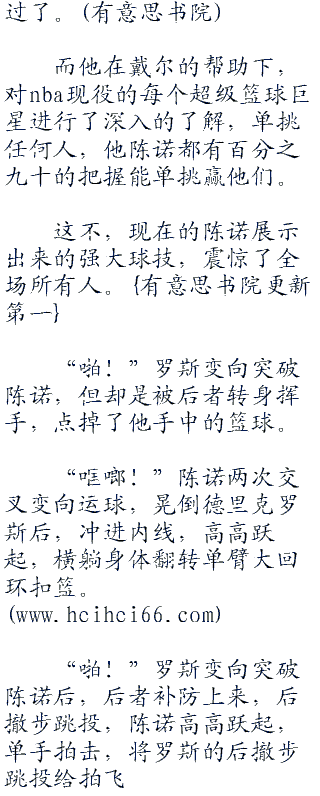 过了。(有意思书院)
而他在戴尔的帮助下，
对nba现役的每个超级篮球巨
星进行了深入的了解，单挑
任何人，他陈诺都有百分之
九十的把握能单挑赢他们。
这不，现在的陈诺展示
出来的强大球技，震惊了全
场所有人。{有意思书院更新
第一}
“啪！”罗斯变向突破
陈诺，但却是被后者转身挥
手，点掉了他手中的篮球。
“哐啷！”陈诺两次交
叉变向运球，晃倒德里克罗
斯后，冲进内线，高高跃
起，横躺身体翻转单臂大回
环扣篮。
(www.hcihci66.com)
“啪！”罗斯变向突破
陈诺后，后者补防上来，后
撤步跳投，陈诺高高跃起，
单手拍击，将罗斯的后撤步
跳投给拍飞